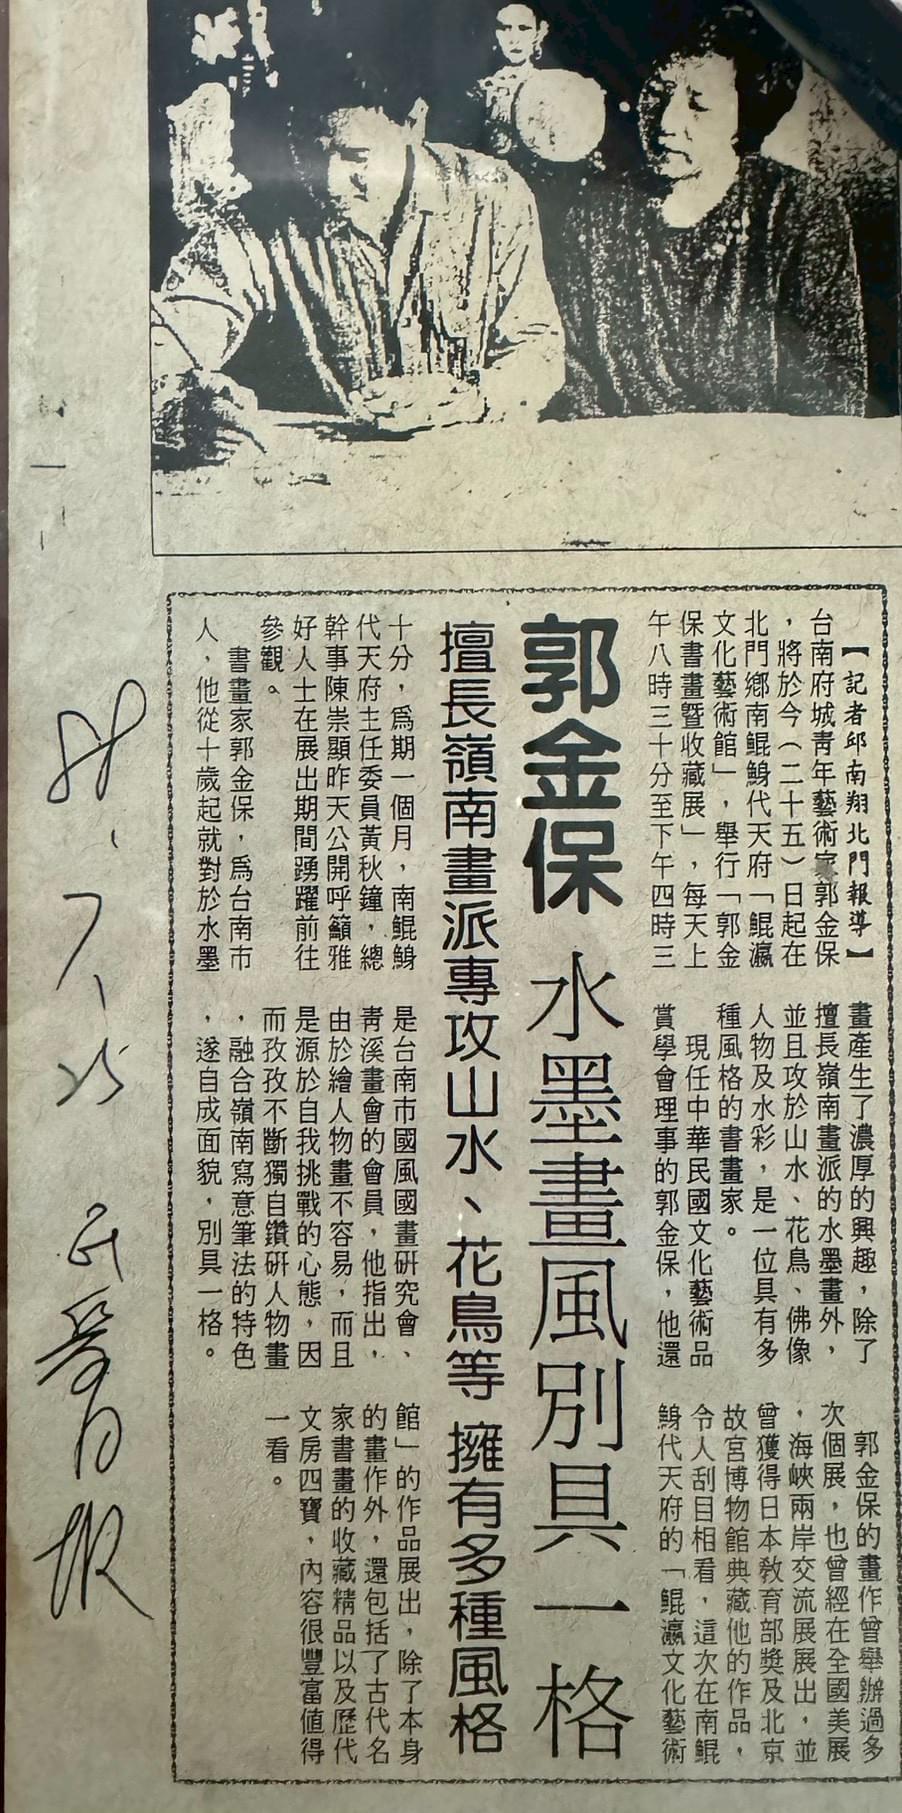 郭金保 水墨畫風別具一格
擅長嶺南畫派專攻山水、花鳥等 擁有多種風格
【記者邱南翔北門報導】
台南府城青年藝術家郭金保
，將於今（二十五）日起在
北門鄉南鯤鯓代天府「鯤瀛
文化藝術館」，舉行「郭金
保書畫暨收藏展」，每天上
午八時三十分至下午四時三
十分，爲期一個月，南鯤鯓
代天府主任委員黃秋鐘，總
幹事陳崇顯昨天公開呼籲雅
好人士在展出期間踴躍前往
參觀。
書畫家郭金保，爲台南市
人，他從十歲起就對於水墨
畫產生了濃厚的興趣，除了
擅長嶺南畫派的水墨畫外，
並且攻於山水、花鳥、佛像
人物及水彩，是一位具有多
種風格的書畫家。
現任中華民國文化藝術品
賞學會理事的郭金保，他還
是台南市國風國畫硏究會、
青溪畫會的會員，他指出，
由於繪人物畫不容易，而且
是源於自我挑戰的心態，因
而孜孜不斷獨自鑽硏人物畫
，融合嶺南寫意筆法的特色
，遂自成面貌，別具一格。
郭金保的畫作曾舉辦過多
次個展，也曾經在全國美展
，海峽兩岸交流展展出，並
曾獲得日本教育部獎及北京
故宮博物館典藏他的作品，
令人刮目相看，這次在南鯤
鯓代天府的「鯤瀛文化藝術
館」的作品展出，除了本身
的畫作外，還包括了古代名
家書畫的收藏精品以及歷代
文房四寶，內容很豐富値得
一看。
7、25 民眾日報